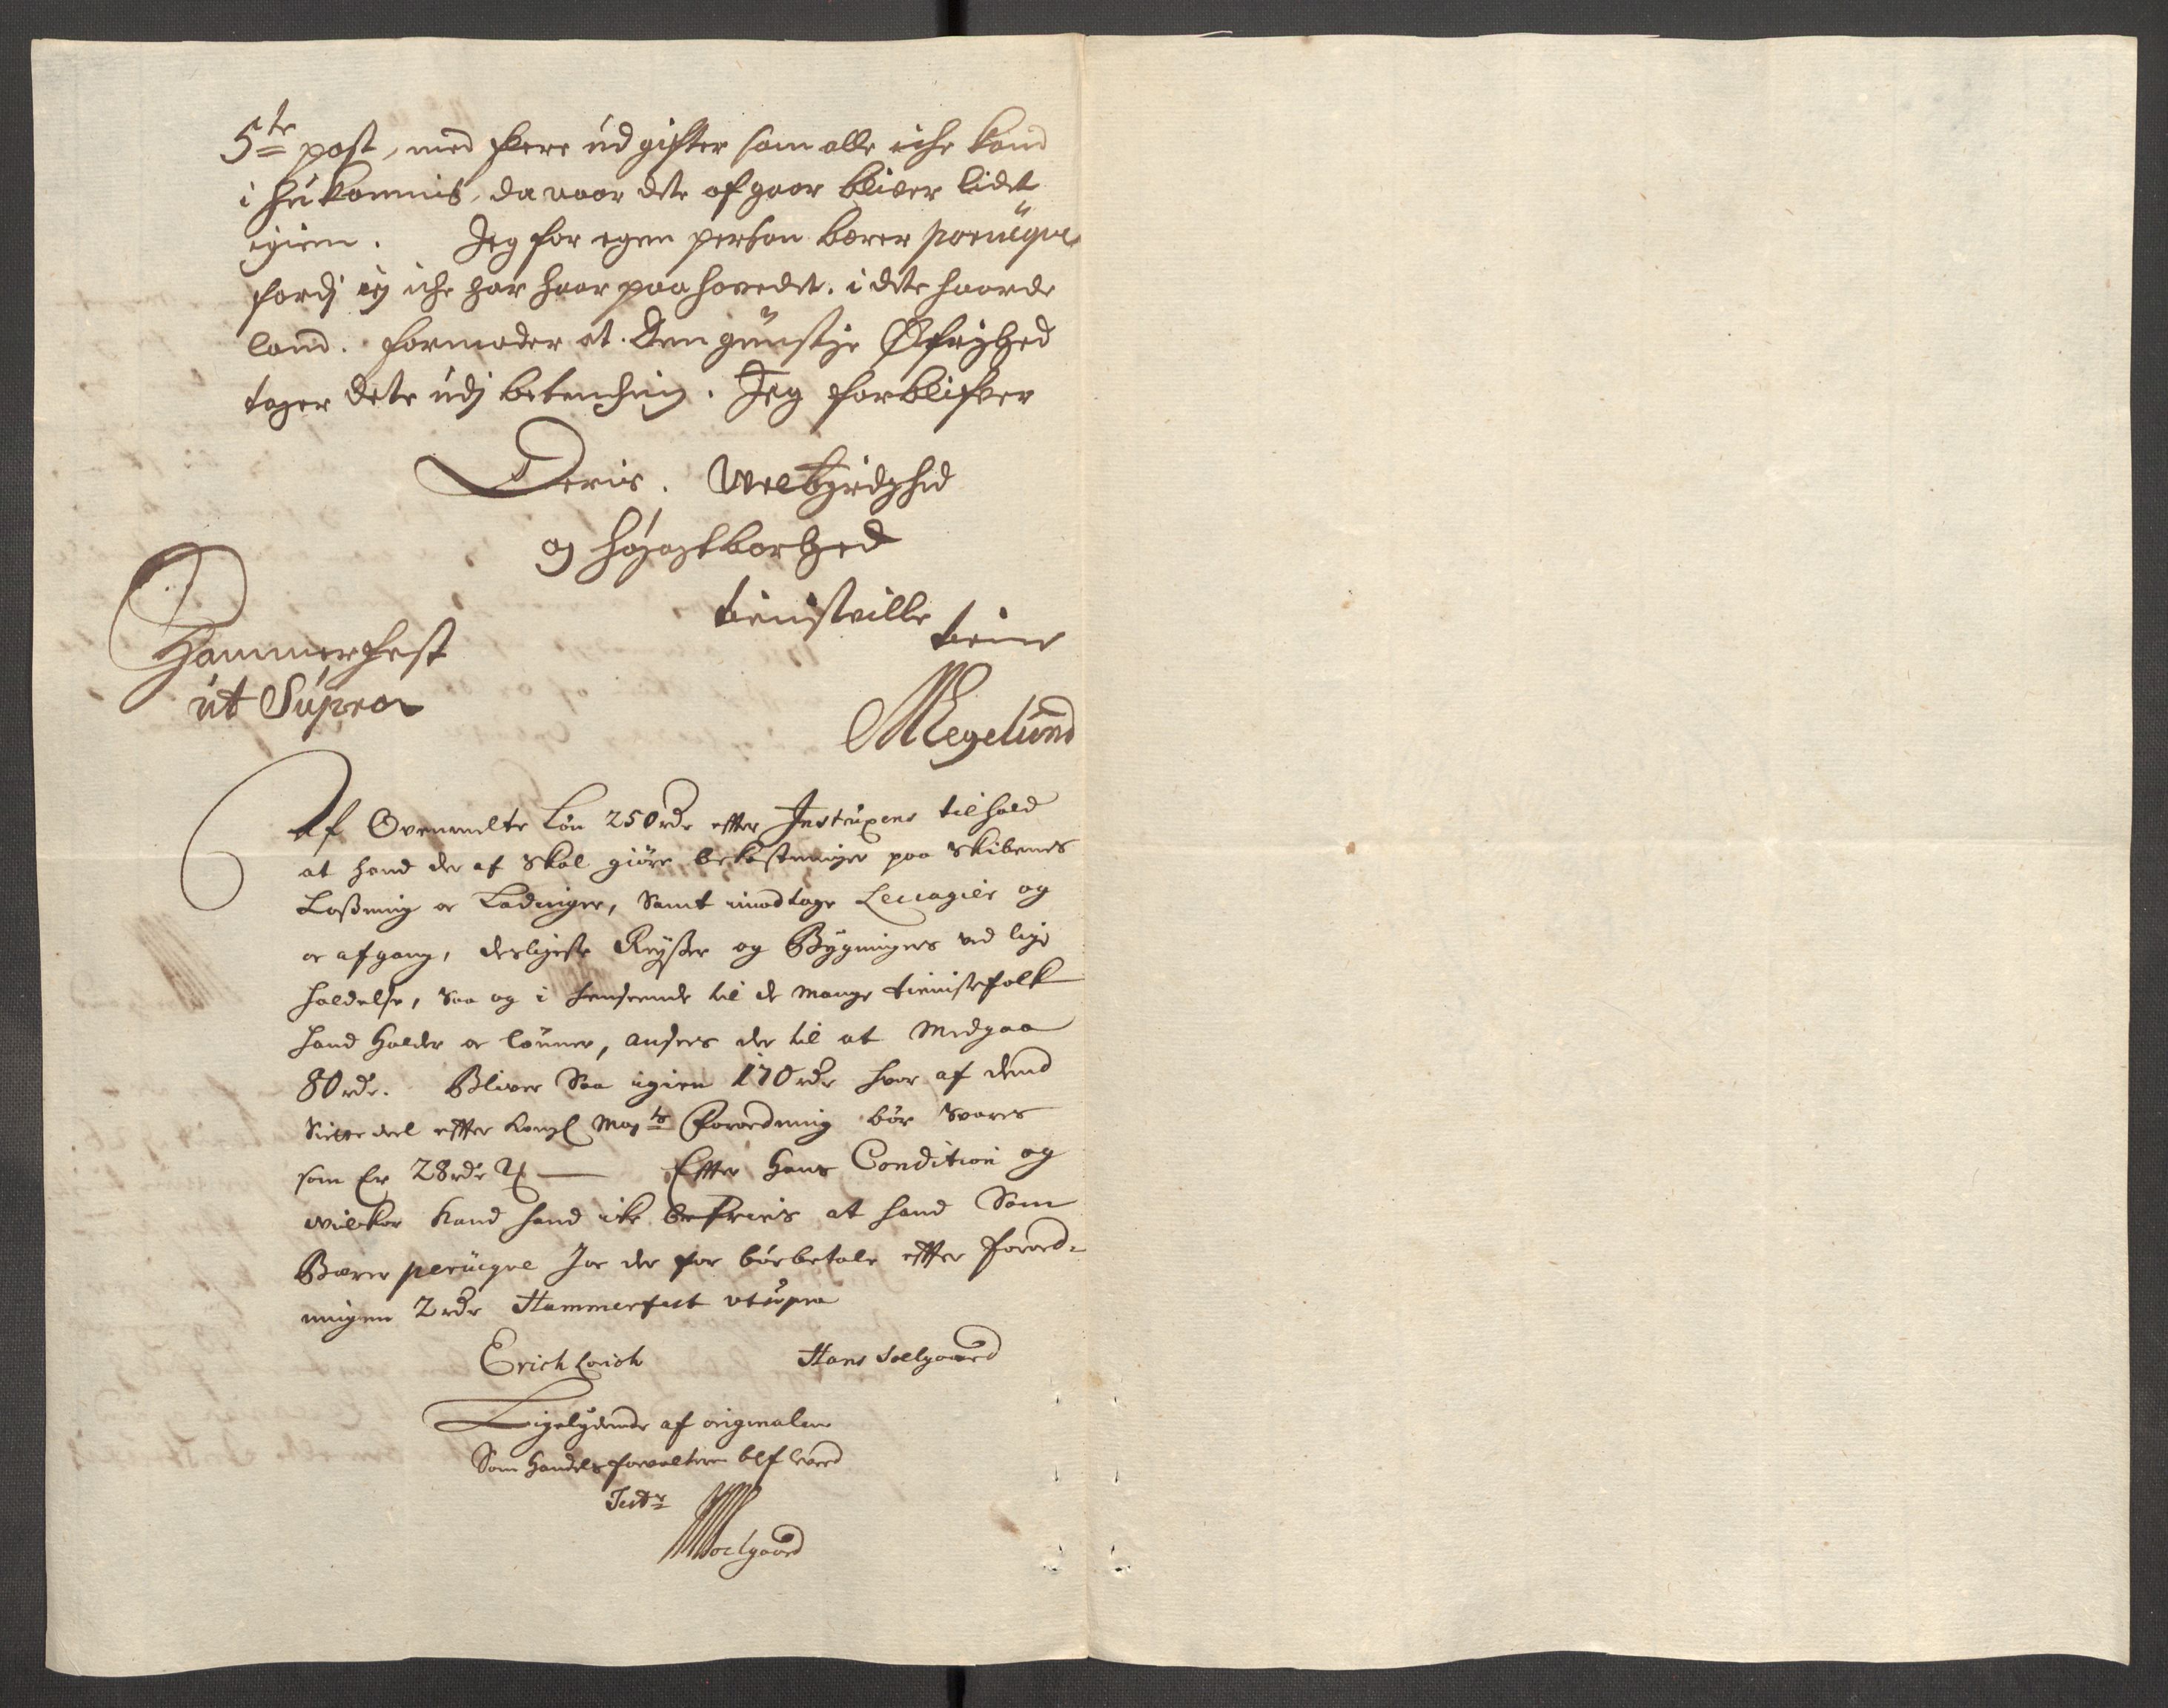 5te post, med flere udgifter som alle iche kand
i hukommis, da naar dete afgaar bliver lidet
igien. Jeg for egen person bærer porüqve
fordj iej iche har haar paa hovedet. i dete haarde
land. formoder at. Den günstige Øfrighed
tager dete udj betenching. Jeg forblifver
Deris. Welbyrdighed
og høyagtbarhed
tienistville
tiener
Hammerfest
ut Supra
Megelund
Af Ovenmelte Løn 250 rdr efter Instruxens tilhold
at hand der af skal giöre bekostninger paa Skibenes
Losning oc Ladninger, Samt imodtage Leccagier og
oc afgang, desligeste Reyßer og Bygningers ved lige
holdelse, saa og i henseende til de mange tienistefolk
hand holder oc lønner, ansees der til at medgaa
80 rdr. Bliver Saa igien 170 rdr hvor af dend
Siette deel effter Kongl May ts Forordning bør Svares
som Er 28 rdr 2 — Effter Hans Condition og
wilkor kand hand ike befries at hand Som
Bærer perücqve Jo der for bör betale effter forord-
ningen 2 rdr Hammerfest vt supra
Erich Lorich Hans Soelgaard
Ligelydende af originalen
Som Handels forvalteren blf leverd
Test
Soelgaard